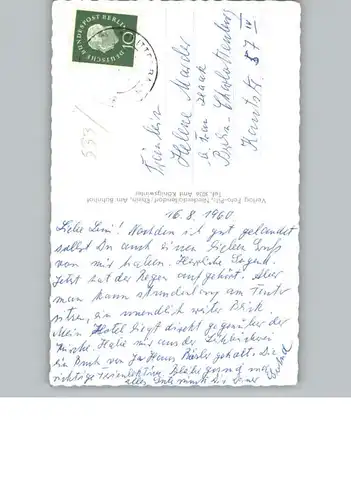 DEUTSCHE BUNDESPOST BERLIN
10
533/
Fräulein
Helene
b. Frau
Berlin-Charlottenburg
Kantstr. 57 IV
Verlag Foto-Pilz, Niederdollendorf/Rhein, Am Bahnhof
Tel. Amt Königswinter
16.8.1960
Liebe Leni! Nachdem ich gut gelandet
sollst Du auch einen lieben Gruß
von mir haben. Herrliche Gegend.
Jetzt hat der Regen aufgehört. Aber
man kann stundenlang am Fenster
sitzen, ein unendlich weiter Blick
Mein Hotel liegt direkt gegenüber der
Kirche. Habe mir aus der
ein Buch von geholt. Die
richtige Ferienlektüre. Bleibe gesund
alles Gute